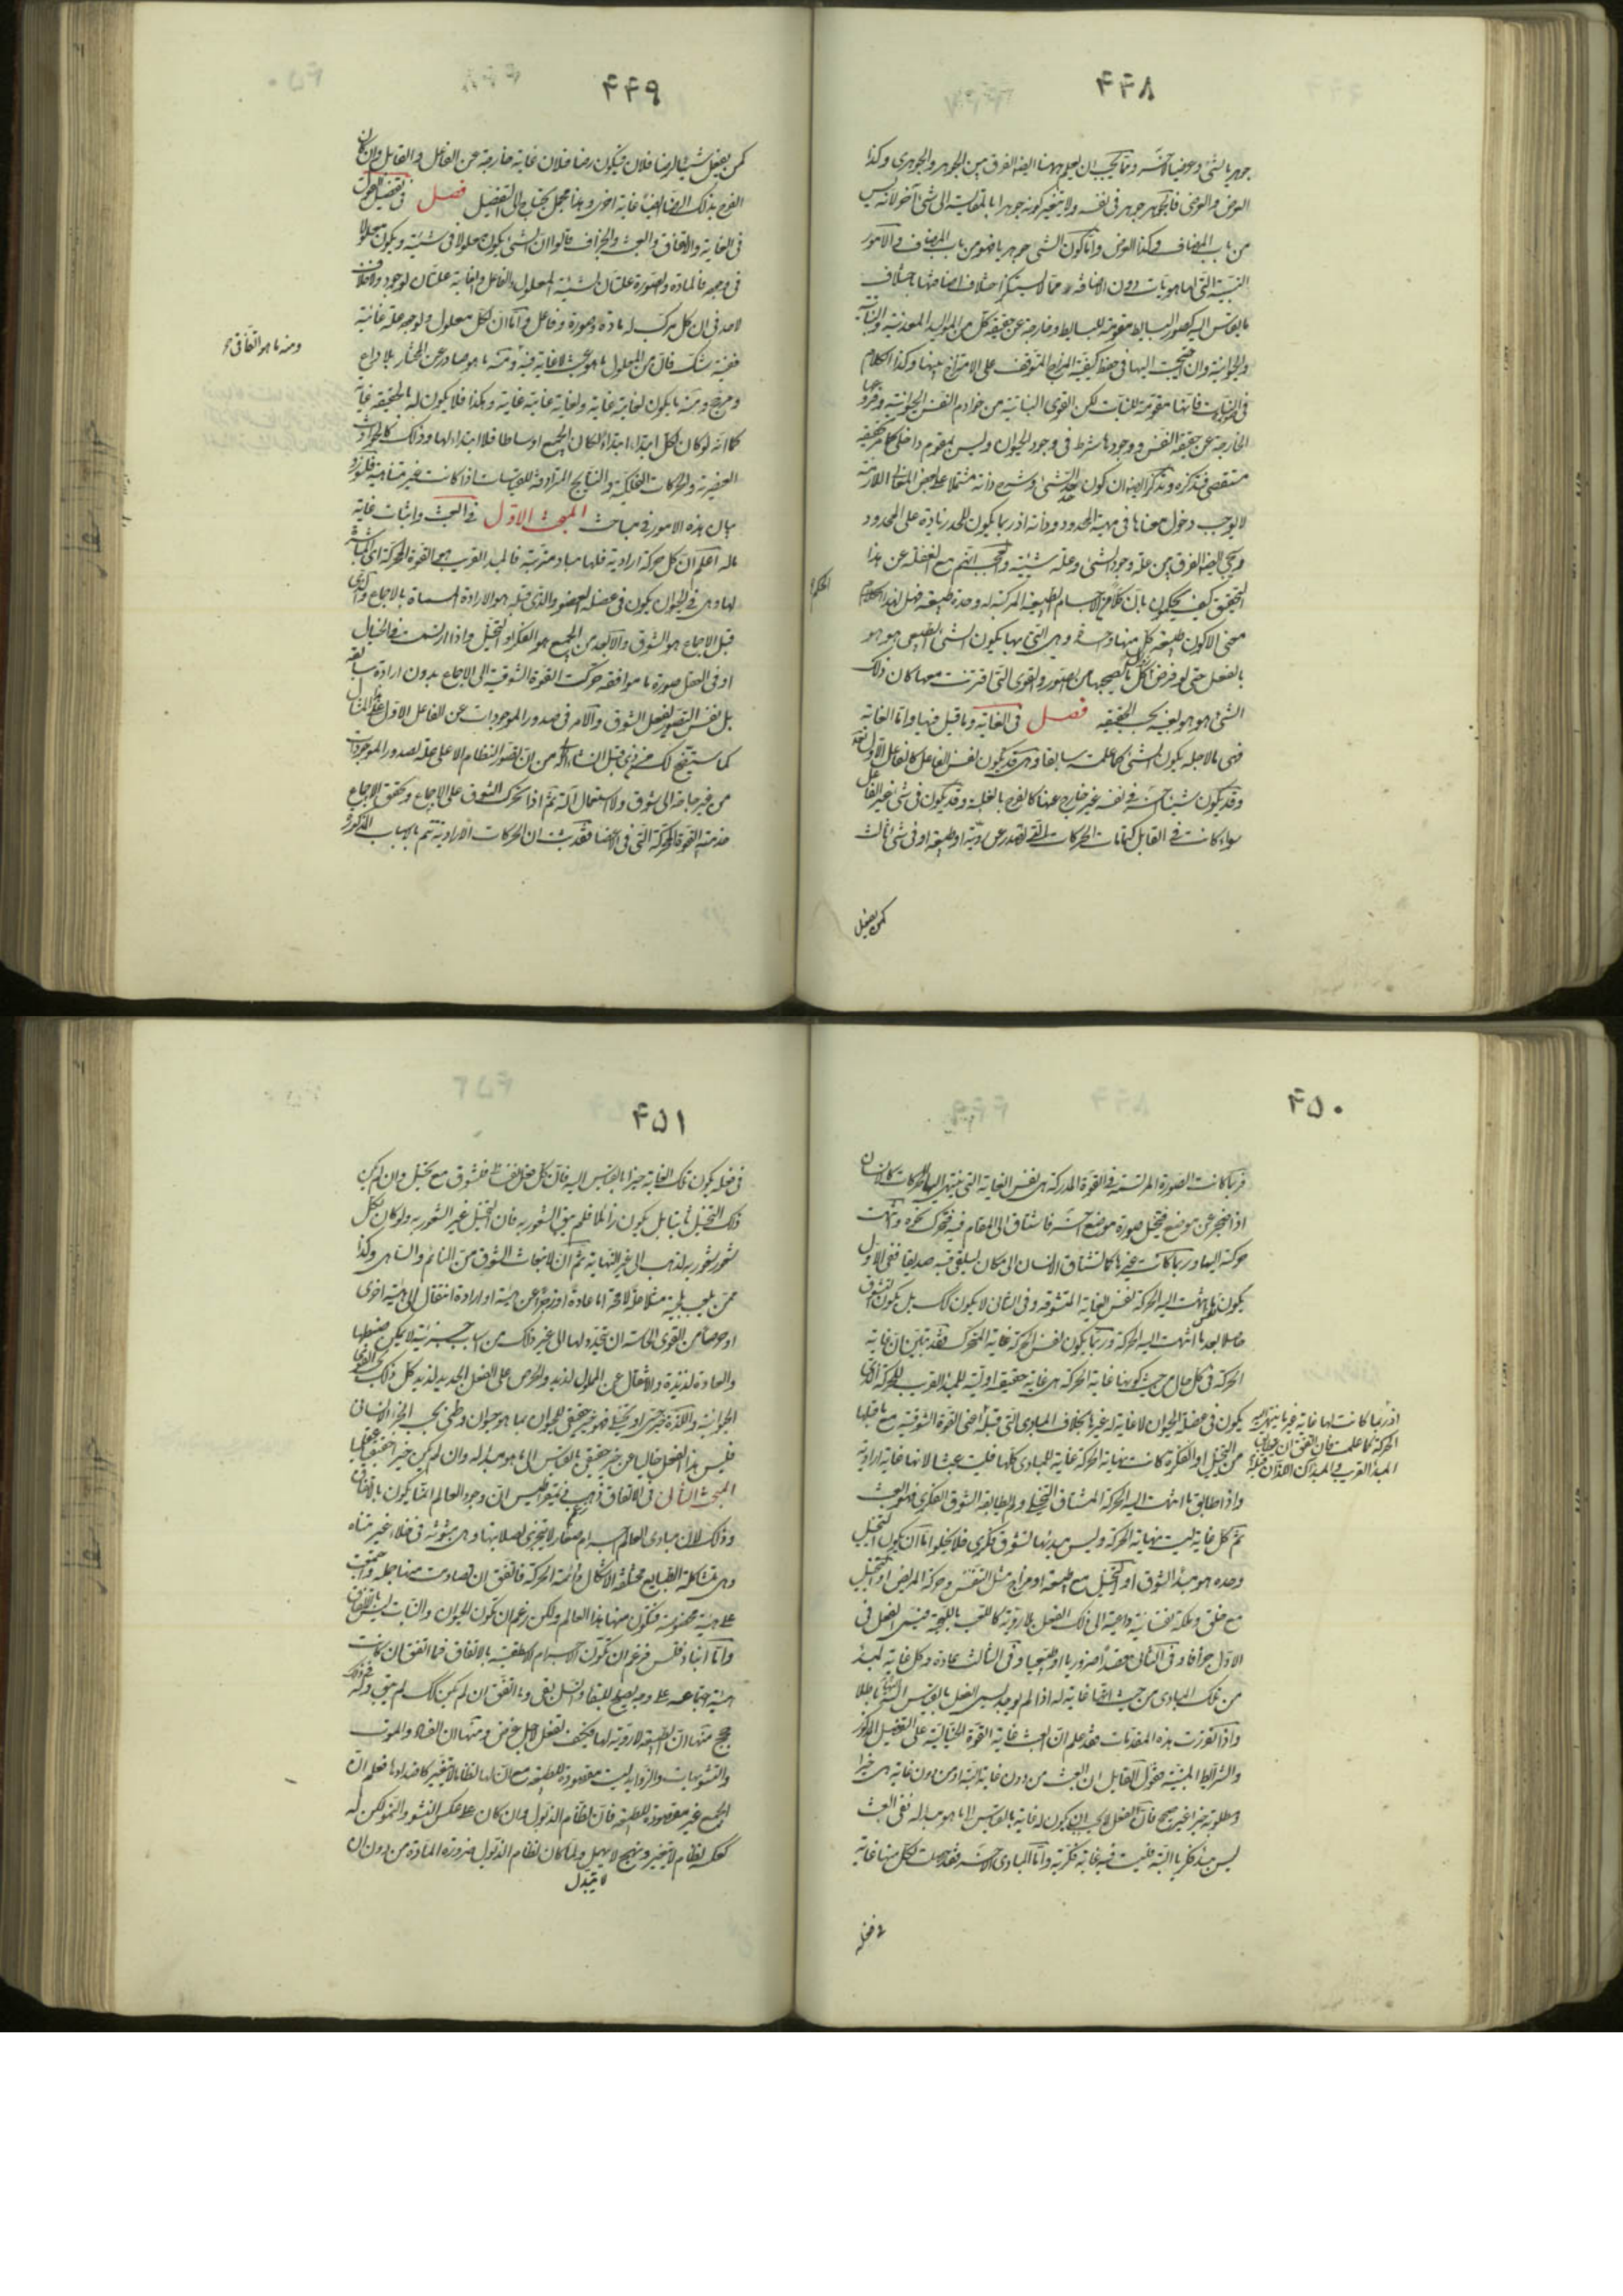 ۴۴۸
جوهريا لشئ وعرضيا لآخر ومما يجب ان يعلم ههنا ايضا الفرق بين الجوهر والجوهرى وكذا
العرض والعرضى فالجوهر جوهر فى نفسه ولا يتغير كونه جوهرا بالمقايسة الى شئ آخر لانه ليس
من باب المضاف وكذا العرض واما كون الشئ جوهريا فهو من باب المضاف فالامور
النسبية التى لها هويات دون الاضافة مما لا يستنكر اختلاف اضافتها باختلاف
ما يقاس اليه كصور البسايط مقومة للبسايط وخارجة عن حقيقة كل من المواليد المعدنية والنباتية
والحيوانية وان احتيجت اليها فى حفظ كيفية المزاج المتوقف على الامتزاج بينها وكذا الكلام
فى النبات فانها مقومة للنبات لكن القوى النباتية من خوادم النفس الحيوانية وفروعها
الخارجة عن حقيقة النفس ووجودها شرط فى وجود الحيوان وليس بمقوم داخل كما مر تحقيقه
مستقصى فتذكره وتذكر ايضا ان كون حد الشئ وشرح ذاته مشتملا على بعض المعانى اللازمة
لا يوجب دخول معناها فى مهية المحدود وذاته اذ ربما يكون للحد زيادة على المحدود
ويجئ ايضا الفرق بين علة وجود الشئ وعلة شيئيته والعجب انهم مع الغفلة عن هذا
التحقيق كيف يحكمون بان كلا من الاجسام الطبيعية المركبة له وحدة طبيعية فهل لهذا الكلام
معنى الا كون طبيعة كل منها واحدة وهى التى بها يكون الشئ الطبيعى هو هو
بالفعل حتى لو فرض زوال كل ما يصحبها من الصور والقوى التى اقترنت معها كان ذلك
الشئ هو هو بعينه بحسب الحقيقة فصل فى الغاية وما قيل فيها واما الغاية
فهى ما لاجله يكون الشئ كما علمت سابقا وهى قد يكون نفس الفاعل كالفاعل الاول تعالى
وقد يكون شيئا آخر فى نفسه غير خارج عنها كالفرح بالغلبة وقد يكون فى شئ غير الفاعل
سواء كانت فى القابل كتمامات الحركات التى تصدر عن روية او طبيعة او فى شئ ثالث
كمن يفعل
۴۴۹
كمن يفعل شيئا لرضا فلان فيكون رضا فلان غاية خارجة عن الفاعل والقابل وان كان
الفرح بذلك الرضا ايضا غاية اخرى وهذا مجمل يحتاج الى التفصيل فصل فى تفصيل القول
فى الغاية والاتفاق والعبث والجزاف قالوا ان الشئ يكون معلولا فى شيئيته ويكون معلولا
فى وجوده فالمادة والصورة علتان لشيئية المعلول والفاعل والغاية علتان لوجوده ولا خلاف
لاحد فى ان كل مركب له مادة وصورة وفاعل واما ان لكل معلول ولوجوده علة غائية
ففيه شك فان من المعلول ما هو عبث لا غاية فيه ومنه ما هو صادر عن المختار بلا داع
ومنه ما هو اتفاقى
ومرجح ومنه ما يكون لغايته غاية ولغاية غايته غاية وهكذا فلا يكون له بالحقيقة غاية
كما انه لو كان لكل ابتداء ابتداء لكان الجميع اوساطا فلا ابتداء لها وذلك كالحوادث
العنصرية والحركات الفلكية والنتايج المترادفة للقياسات اذا كانت غير متناهية فلنورد
بيان هذه الامور فى مباحث المبحث الاول فى العبث واثبات غاية
ما له اعلم ان كل حركة ارادية فلها مباد مترتبة فالمبدء القريب هو القوة المحركة اى المباشرة
لها وهى فى الحيوان يكون فى عضلة العضو والذى قبله هو الارادة المسماة بالاجماع والذى
قبل الاجماع هو الشوق والابعد من الجميع هو الفكر او التخيل واذا ارتسمت فى الخيال
او فى العقل صورة ما موافقة حركت القوة الشوقية الى الاجماع بدون ارادة سابقة
بل نفس التصور يفعل الشوق والامر فى صدور الموجودات عن الفاعل الاول على هذا المثال
كما ستقف لك من ذى قبل انشاء الله من ان تصور النظام الاعلى علة لصدور الموجودات
من غير حاجة الى شوق ولا استعمال آلة ثم اذا تحرك الشوق على الاجماع وتحقق الاجماع
خدمته القوة المحركة التى فى الاعضاء فقد ثبت ان الحركات الارادية تتم بالاسباب المذكورة
۴۵۰
فربما كانت الصورة المرتسمة فى القوة المدركة هى نفس الغاية التى ينتهى اليها الحركات كالانسان
اذا ضجر عن موضع فتخيل صورة موضع آخر فاشتاق الى المقام فيه فتحرك نحوه وانتهت
حركته اليها وربما كانت غيرها كما يشتاق الانسان الى مكان ليلقى فيه صديقا ففى الاول
يكون نفس ما انتهت اليه الحركة نفس الغاية المتشوقة وفى الثانى لا يكون كذلك بل يكون المتشوق
حاصلا بعد ما انتهت اليه الحركة وربما يكون نفس الحركة غاية المتحرك فقد تبين ان غاية
الحركة فى كل حال من حيث كونها غاية الحركة هى غاية حقيقية اولية للمبدء القريب للحركة الذى
يكون فى عضلة الحيوان لا غاية له غيرها بخلاف المبادى التى قبله اعنى القوة الشوقية مع ما قبلها
من التخيل او الفكر كانت نهاية الحركة غاية للمبادى كلها فليست عبثا لانها غاية ارادية
اذ ربما كانت لها غاية غير ما ينتهى اليه
الحركة كما علمت فان اتفق ان يتطابق
المبدء القريب والمبدئان اللذان قبله
واذا طابق ما انتهت اليه الحركة المشتاق التخيلى ولم يطابقه الشوق الفكرى فهو العبث
ثم كل غاية ليست نهاية الحركة وليس مبدئها تشوق فكرى فلا يخلو اما ان يكون التخيل
وحده هو مبدء الشوق او التخيل مع طبيعة او مزاج مثل التنفس وحركة المريض او التخيل
مع خلق وملكة نفسانية داعية الى ذلك الفعل بلا روية كاللعب باللحية فيسمى الفعل فى
الاول جزافا وفى الثانى قصدا ضروريا او طبيعيا وفى الثالث عادة وكل غاية لمبدء
من تلك المبادى من حيث انها غاية له اذا لم يوجد يسمى الفعل بالقياس اليه باطلا
واذا تقررت هذه المقدمات فقد علم ان العبث غاية القوة الخيالية على التفصيل المذكور
والشرائط المبينة فقول القايل ان العبث من دون غاية البتة او من دون غاية هى خيرا
ومظنونة خيرا غير صحيح فان الفعل لا يجب ان يكون له غاية بالقياس الى ما هو مبدء له ففى العبث
ليس مبدء فكريا البتة فليست فيه غاية فكرية واما المبادى الاخر فقد حصلت لكل منها غاية
فى فعله
۴۵۱
فى فعله يكون تلك الغاية خيرا بالقياس اليه فان كل فعل نفسانى فلشوق مع تخيل وان لم يكن
ذلك التخيل ثابتا بل يكون زائلا فلم يبق الشعور به فان التخيل غير الشعور به ولو كان لكل
شعور شعور به لذهب الى غير النهاية ثم ان لانبعاث الشوق من النائم والساهى وكذا
ممن يلعب بلحيته مثلا علة لا محة اما عادة او ضجر عن هيئة او ارادة انتقال الى هيئة اخرى
او حرصا من القوى الحاسة ان يتجدد لها الى غير ذلك من اسباب جزئية لا يمكن ضبطها
والعادة لذيذة والانتقال عن المملول لذيذ والحرص على الفعل الجديد لذيذ كل ذلك بحسب القوى
الحيوانية واللذة خير حسى او تخيلى فهو خير حقيقى للحيوان بما هو حيوان وظنى بحسب الخير الانسانى
فليس هذا الفعل خاليا عن خير حقيقى بالقياس الى ما هو مبدء له وان لم يكن خيرا حقيقيا عقليا
المبحث الثانى فى الاتفاق ذهب ذيمقراطيس الى ان وجود العالم انما يكون بالاتفاق
وذلك لان مبادى العالم اجرام صغار لا تتجزى لصلابتها وهى مبثوثة فى خلاء غير متناه
وهى متشاكلة الطبايع مختلفة الاشكال دائمة الحركة فاتفق ان تصادمت منها جملة واجتمعت
على هيئة مخصوصة فتكون منها هذا العالم ولكن زعم ان تكون الحيوان والنبات ليس بالاتفاق
واما انباذقلس فزعم ان تكون الاجرام الاسطقسية بالاتفاق فما اتفق ان كانت
هيئة اجتماعية على وجه يصلح للبقاء والنسل بقى وما اتفق ان لم يكن كذلك لم يبق وله فى ذلك
حجج منها ان الطبيعة لا روية لها فكيف تفعل لاجل غرض ومنها ان الفساد والموت
والتشويهات والزوايد ليست مقصودة للطبيعة مع ان لها نظاما لا يتغير كاضدادها فعلم ان
الجميع غير مقصودة للطبيعة فان نظام الذبول وان كان على عكس النشو والنمو لكن له
كعكسه نظام لا يتغير ونهج لا يمهل ولما كان نظام الذبول ضرورة المادة من دون ان
لا يتبدل